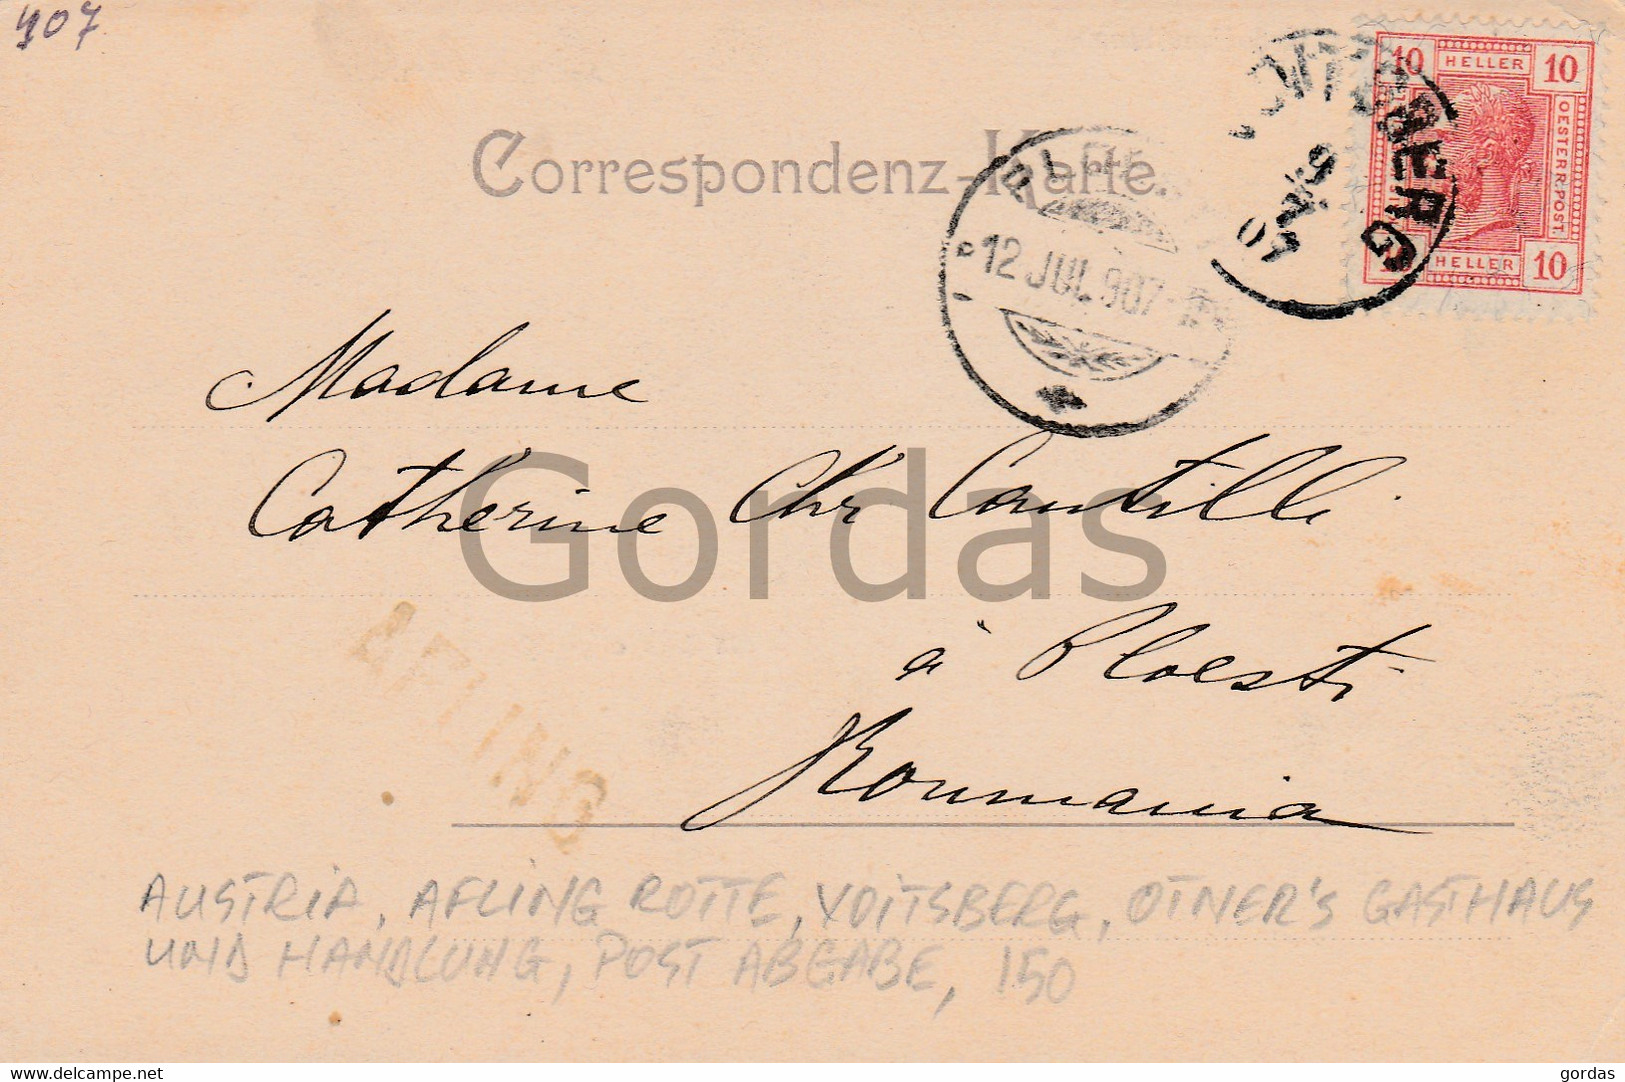 907
10 HELLER 10
OESTERR.POST
10 HELLER 10
VOITSBERG
9 7 07
Correspondenz-Karte.
12 JUL 907
Madame
Catherine Chr Cantilli
Gordas
à Ploesti
Roumania
AFLING
AUSTRIA, AFLING ROTTE, VOITSBERG, OTNER'S GASTHAUS
UND HANDLUNG, POST ABGABE, 150
delcampe.net
gordas